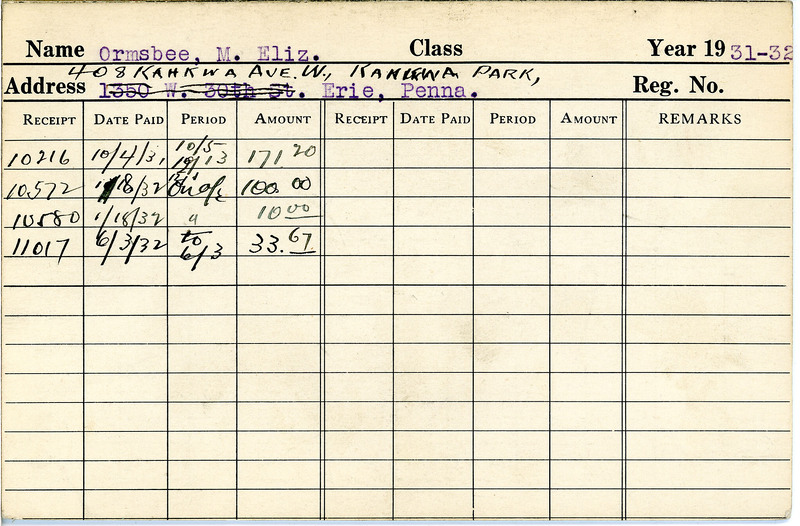 Name Ormsbee, M. Eliz. Class Year 19 31-32
408 KAHKWA AVE. W., KAHKWA PARK,
Address 1350 W. 30th St. Erie, Penna. Reg. No.
RECEIPT DATE PAID PERIOD AMOUNT RECEIPT DATE PAID PERIOD AMOUNT REMARKS
10216 10/4/31 10/5 12/13 171.20
10572 1/18/32 100.00
10580 1/18/32 " 10 00
11017 6/3/32 to 6/3 33.67